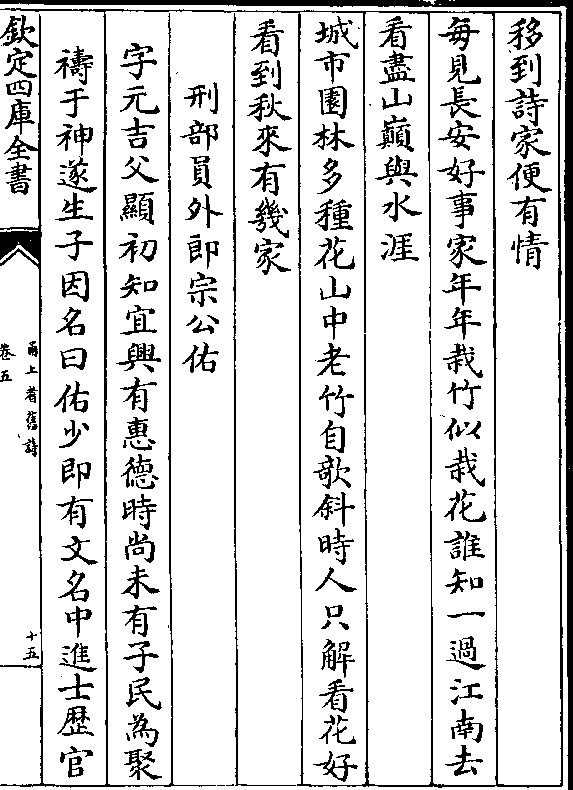 移到詩家便有情
每見長安好事家年年栽竹似栽花誰知一過江南去
看盡山巔與水涯
城市園林多種花山中老竹自欹斜時人只解看花好
看到秋來有幾家
刑部員外郎宗公佑
字元吉父顯初知宜興有惠德時尚未有子民為聚
禱于神遂生子因名曰佑少即有文名中進士歴官
欽定四庫全書
甬上耆舊詩
卷五
十五